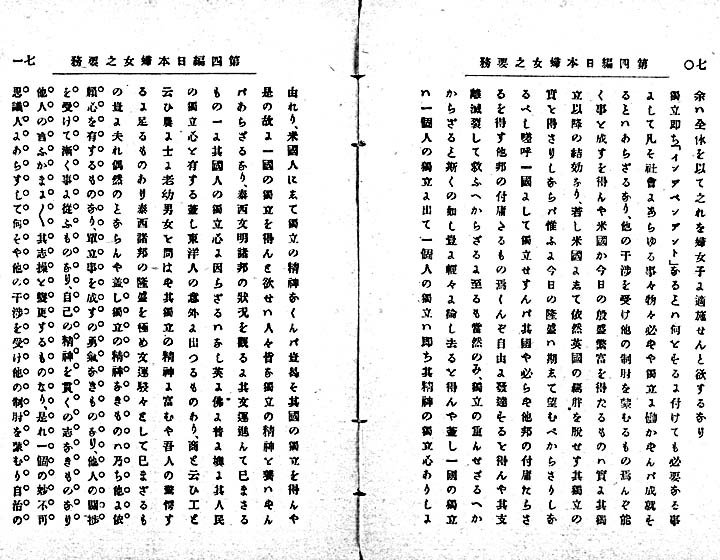 七〇
第四編日本婦女之要務
余ハ全体を以て之れを婦女子ょ適施せんと欲するなり
獨立即ち「インデペンデント」なることハ何ことをするょ付けても必要なる事
ょして凡そ社會ょあらゆる事々物々必や獨立ょ
るとハあらざるなり、他の干渉を受け他の制肘を蒙むるもの焉んぞ能
く事と成すを得んや米國か今日の殷盛繁富を得たるものハ實ょ其獨
立以降の結効なり、若し米國ょまて依然英國の羈絆を脱せす其獨立の
實と得さりしならバ惟ふょ今日の隆盛ハ期まて望むべからさりしな
るべし嗟呼一國ょして獨立せすんバ其國や必らや他邦の付庸たらさ
るを得す他邦の付庸さるもの焉くんぞ自由ょ發達そると得んや其支
離滅裂して救ふへからざるょ至るも當然のみ、獨立の重んせざるへか
からざると斯くの如し豈ょ輕々ょ論し去ると得んや蓋し一國の獨立
ハ一個人の獨立ょ出て一個人の獨立ハ即ち其精神の獨立心ありしょ
第四編日本婦女之要務
七一
由れり、米國人にまて獨立の精神なくんバ豈曷そ其國の獨立を得んや
是の故ょ一國の獨立を得んと欲せハ人々皆な獨立の精神と養ハやん
バあらざるなり、泰西文明諸邦の狀况を觀るょ其文運進んて已まさる
もの一ょ其國人の獨立心ょ因らざるハなし英ょ佛ょ普ょ墺ょ其人民
の獨立心と有する蓋し東洋人の意外ょ出つるものあり、商と云ひ工と
云ひ農ょ士ょ老幼男女を問はや其獨立の精神ょ富むや吾人の驚愕す
るょ足るものあり泰西諸邦の隆盛を極め文運駸々として已まざるも
の豈ょ夫れ偶然のとならんや蓋し獨立の精神なきものハ乃ち他ょ依
賴心を有するものなり、單立事を成すの勇氣なきものなり、他人の關渉
を受けて漸く事ょ從ふものなり、自己の精神を貫くの志なきものなり
他人の言ふかまょ〱其志操と變更するものなり、是れ一個の妙不可
思議人ょあらすして何そや他の干渉を受け他の制肘を蒙むり自治の